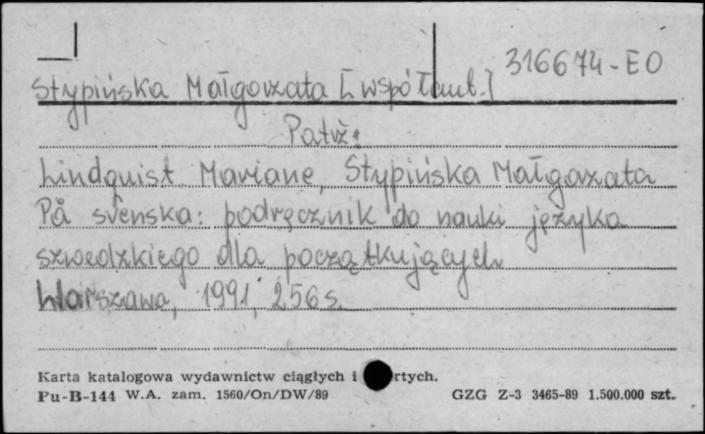 316674-EO
Stypińska Małgorzata [współaut.]
Patrz:
Lindquist Mariane, Stypińska Małgorzata
På svenska: podręcznik do nauki języka
szwedzkiego dla początkujących
Warszawa, 1991, 256 s.
Karta katalogowa wydawnictw ciągłych i rtych.
Pu-B-144 W.A. zam. 1560/On/DW/89 GZG Z-3 3465-89 1.500.000 szt.